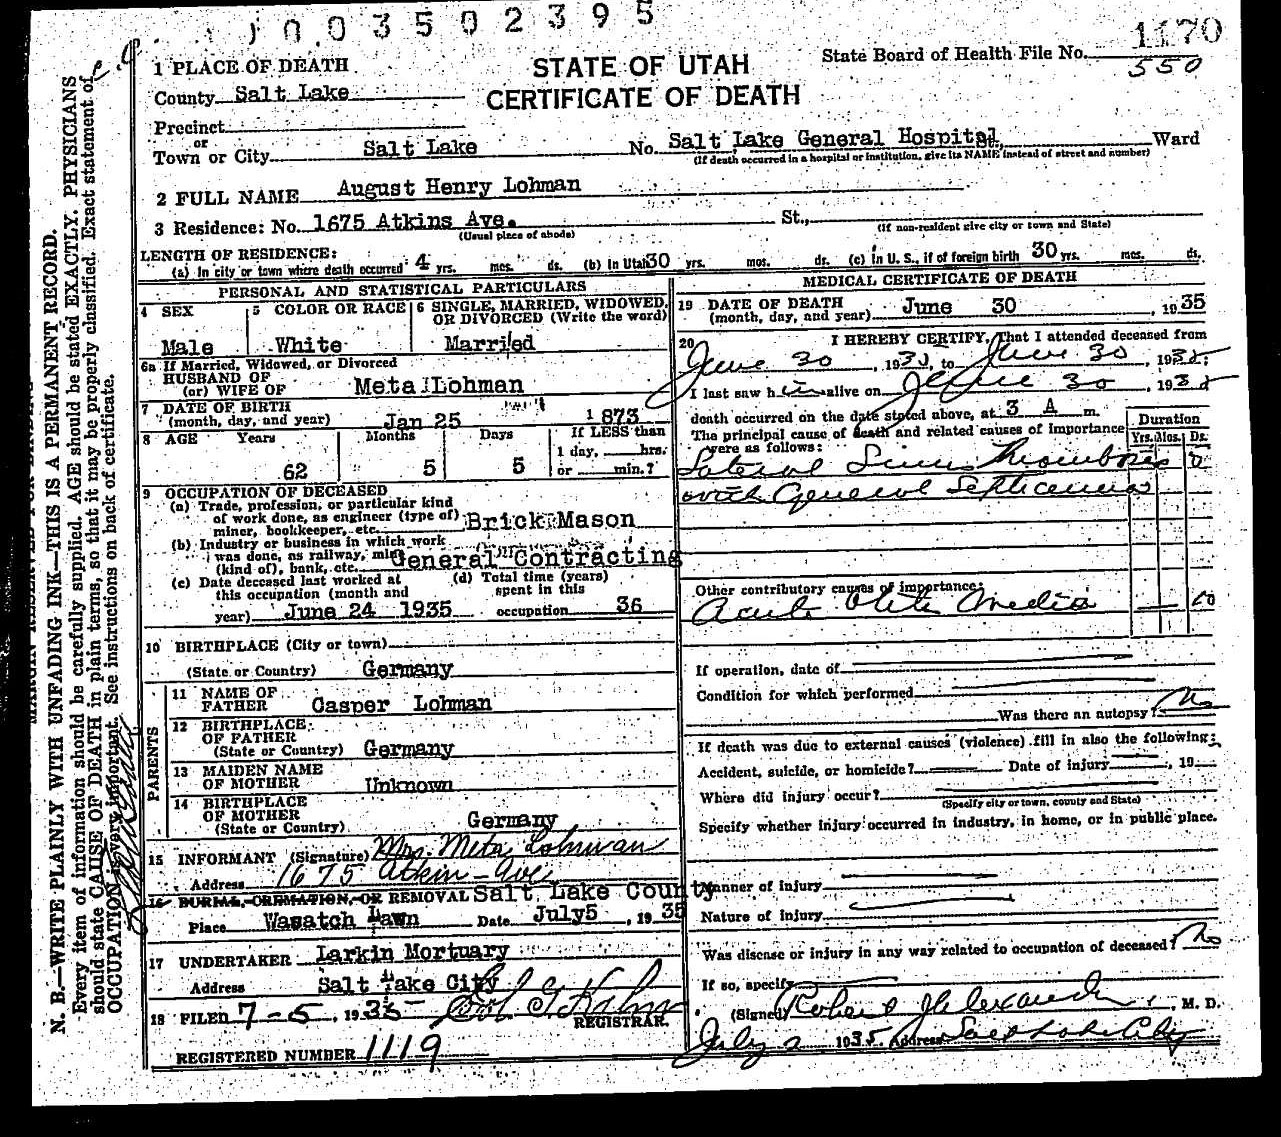 0 0 3 5 0 2 3 9 5
1170
State Board of Health File No. 550
STATE OF UTAH
CERTIFICATE OF DEATH
1 PLACE OF DEATH
County Salt Lake
Precinct
or
Town or City Salt Lake No. Salt Lake General Hospital St., Ward
(If death occurred in a hospital or institution, give its NAME instead of street and number)
2 FULL NAME August Henry Lohman
3 Residence: No. 1675 Atkins Ave. St.,
(Usual place of abode) (If non-resident give city or town and State)
LENGTH OF RESIDENCE:
(a) In city or town where death occurred 4 yrs. mos. ds. (b) In Utah 30 yrs. mos. ds. (c) In U. S., if of foreign birth 30 yrs. mos. ds.
PERSONAL AND STATISTICAL PARTICULARS
4 SEX
Male
5 COLOR OR RACE
White
6 SINGLE, MARRIED, WIDOWED, OR DIVORCED (Write the word)
Married
6a If Married, Widowed, or Divorced
HUSBAND OF
(or) WIFE OF Meta Lohman
7 DATE OF BIRTH
(month, day, and year) Jan 25 1873
8 AGE Years Months Days If LESS than
1 day, hrs.
62 5 5 or min.?
9 OCCUPATION OF DECEASED
(a) Trade, profession, or particular kind
of work done, as engineer (type of)
miner, bookkeeper, etc. Brick Mason
(b) Industry or business in which work
was done, as railway, mine
(kind of), bank, etc. General Contracting
(c) Date deceased last worked at
this occupation (month and
year) June 24 1935
(d) Total time (years)
spent in this
occupation 36
10 BIRTHPLACE (City or town)
(State or Country) Germany
PARENTS
11 NAME OF
FATHER Casper Lohman
12 BIRTHPLACE
OF FATHER
(State or Country) Germany
13 MAIDEN NAME
OF MOTHER Unknown
14 BIRTHPLACE
OF MOTHER
(State or Country) Germany
15 INFORMANT (Signature) Mrs. Meta Lohman
Address 1675 Atkin Ave
16 BURIAL, CREMATION, OR REMOVAL Salt Lake County
Place Wasatch Lawn Date July5, 1935
17 UNDERTAKER Larkin Mortuary
Address Salt Lake City
18 FILED 7-5, 1935
REGISTRAR.
REGISTERED NUMBER 1119
MEDICAL CERTIFICATE OF DEATH
19 DATE OF DEATH
(month, day, and year) June 30, 1935
20 I HEREBY CERTIFY, That I attended deceased from
June 30, 1935, to June 30, 1935;
I last saw him alive on June 30, 1935
death occurred on the date stated above, at 3 A m.
The principal cause of death and related causes of importance
were as follows:
Duration
Yrs. Mos. Ds.
Lateral Sinus Thrombosis
with General Septicemia
Other contributory causes of importance:
Acute Otitis Media 10
If operation, date of
Condition for which performed
Was there an autopsy? No
If death was due to external causes (violence) fill in also the following:
Accident, suicide, or homicide? Date of injury , 19
Where did injury occur?
(Specify city or town, county and State)
Specify whether injury occurred in industry, in home, or in public place.
Manner of injury
Nature of injury
Was disease or injury in any way related to occupation of deceased? No
If so, specify
(Signed) Robert Alexander, M. D.
July 2 1935 Address Salt Lake City
N. B.—WRITE PLAINLY WITH UNFADING INK—THIS IS A PERMANENT RECORD.
Every item of information should be carefully supplied. AGE should be stated EXACTLY. PHYSICIANS
should state CAUSE OF DEATH in plain terms, so that it may be properly classified. Exact statement of
OCCUPATION is very important. See instructions on back of certificate.